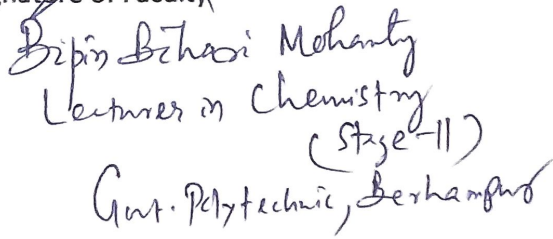 of Faculty
Bipin Bihari Mohanty
Lecturer in Chemistry
(Stage-II)
Govt. Polytechnic, Berhampur